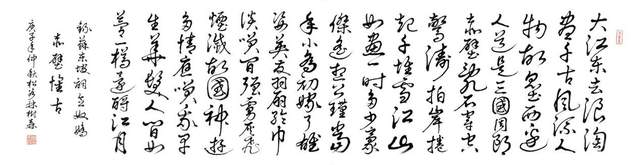 大江东去浪淘
盡千古風流人
物故壘西邊
人道是三國周郎
赤壁亂石穿空
驚濤拍岸捲
起千堆雪江山
如畫一時多少豪
傑遙想公瑾當
年小喬初嫁了雄
姿英發羽扇纶巾
談笑間強虜灰飛
煙滅故國神遊
多情應笑我早
生華髮人間如
夢一樽還酹江月
録蘇东坡詞念奴嬌
赤壁懷古
庚子年仲秋